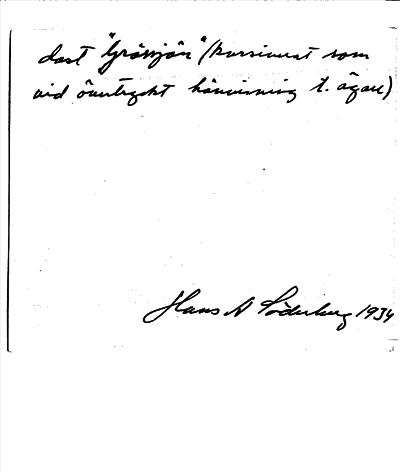 dast "Gråsjön" (kursiverat som
vid öuutryckt hänvisning t. ägare)
Hans A Söderberg 1934